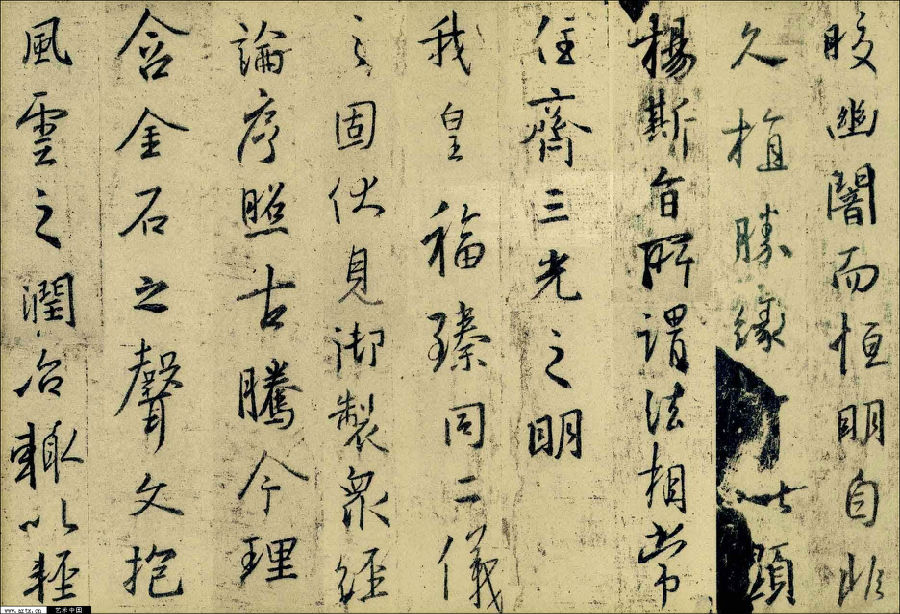 晈幽闇而恒明自非
久植勝緣以顯
楊斯旨所謂法相常
住齊三光之明
我皇福臻同二儀
之固伏見御製衆經
論序照古騰今理
含金石之聲文抱
風雲之潤治輒以輕
www.artx.cn 艺术中国